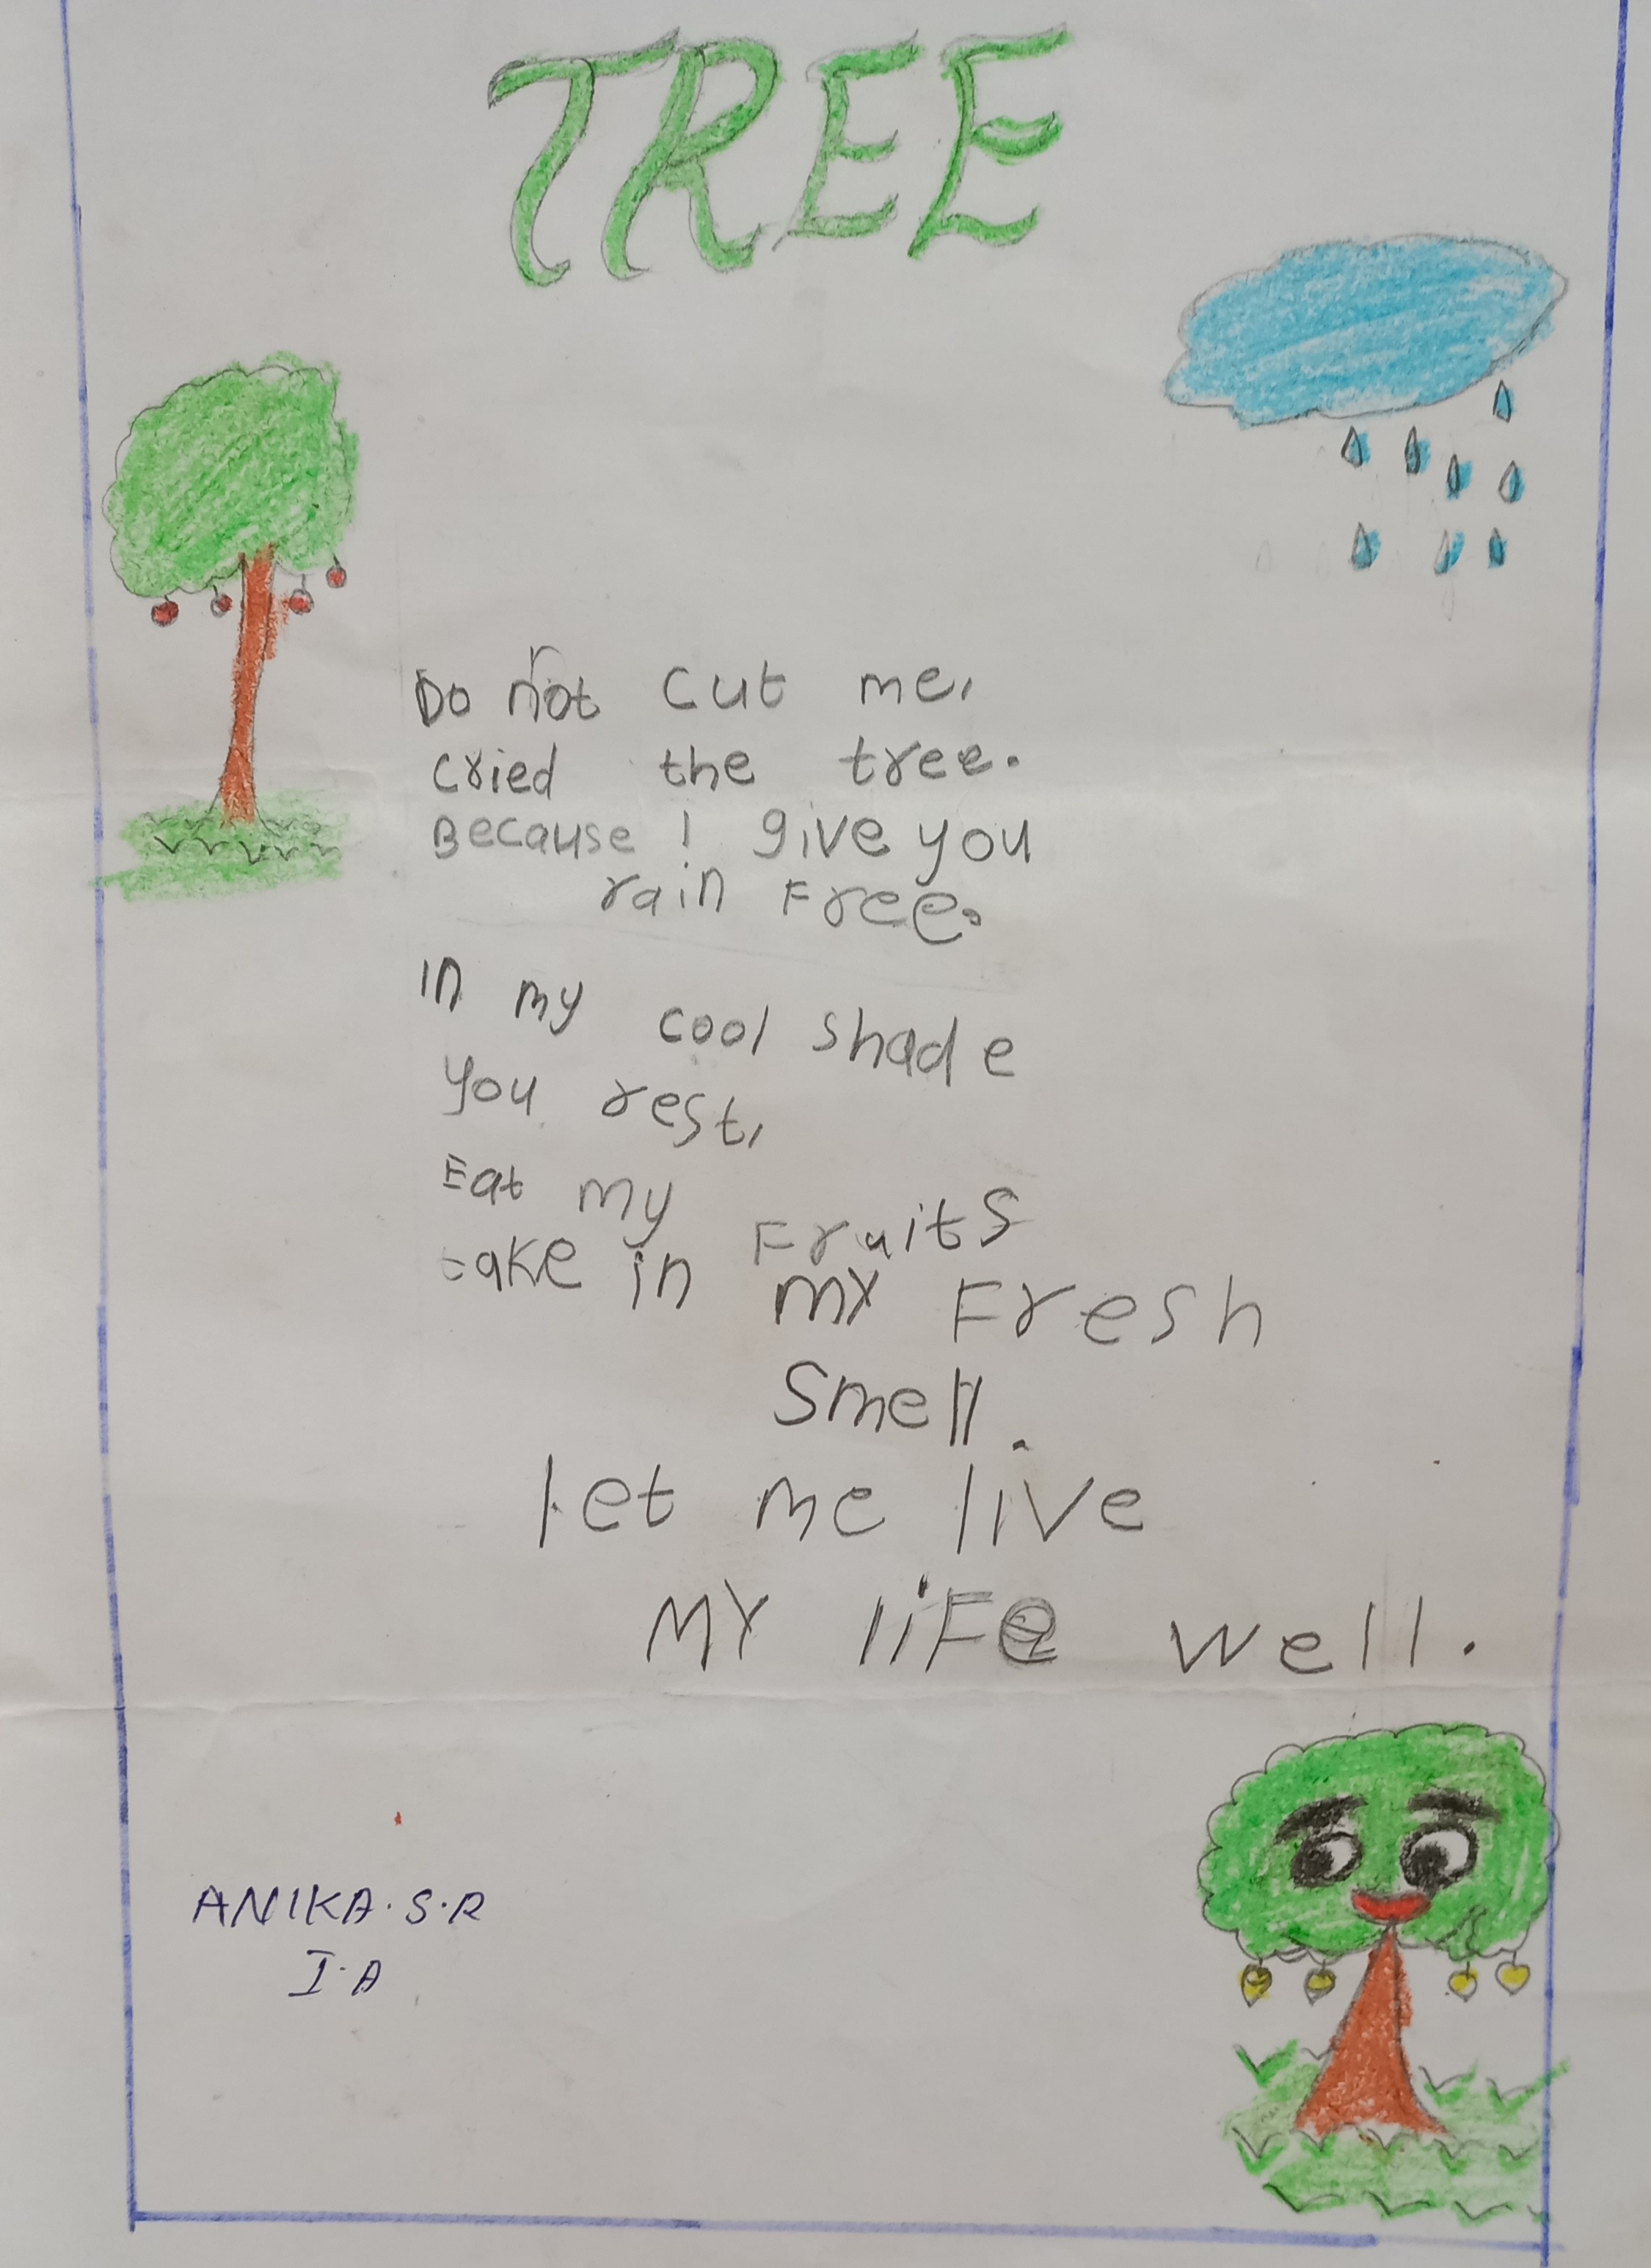 TREE
Do not cut me,
cried the tree.
Because I give you
rain Free.
in my cool shade
you rest,
Eat my Fruits
take in my Fresh
Smell.
let me live
MY liFe well.
ANIKA.S.R
I.A